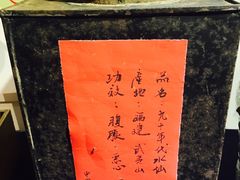 品名：九十年代水仙
產地：福建武夷山
功效：腹脹、悪心